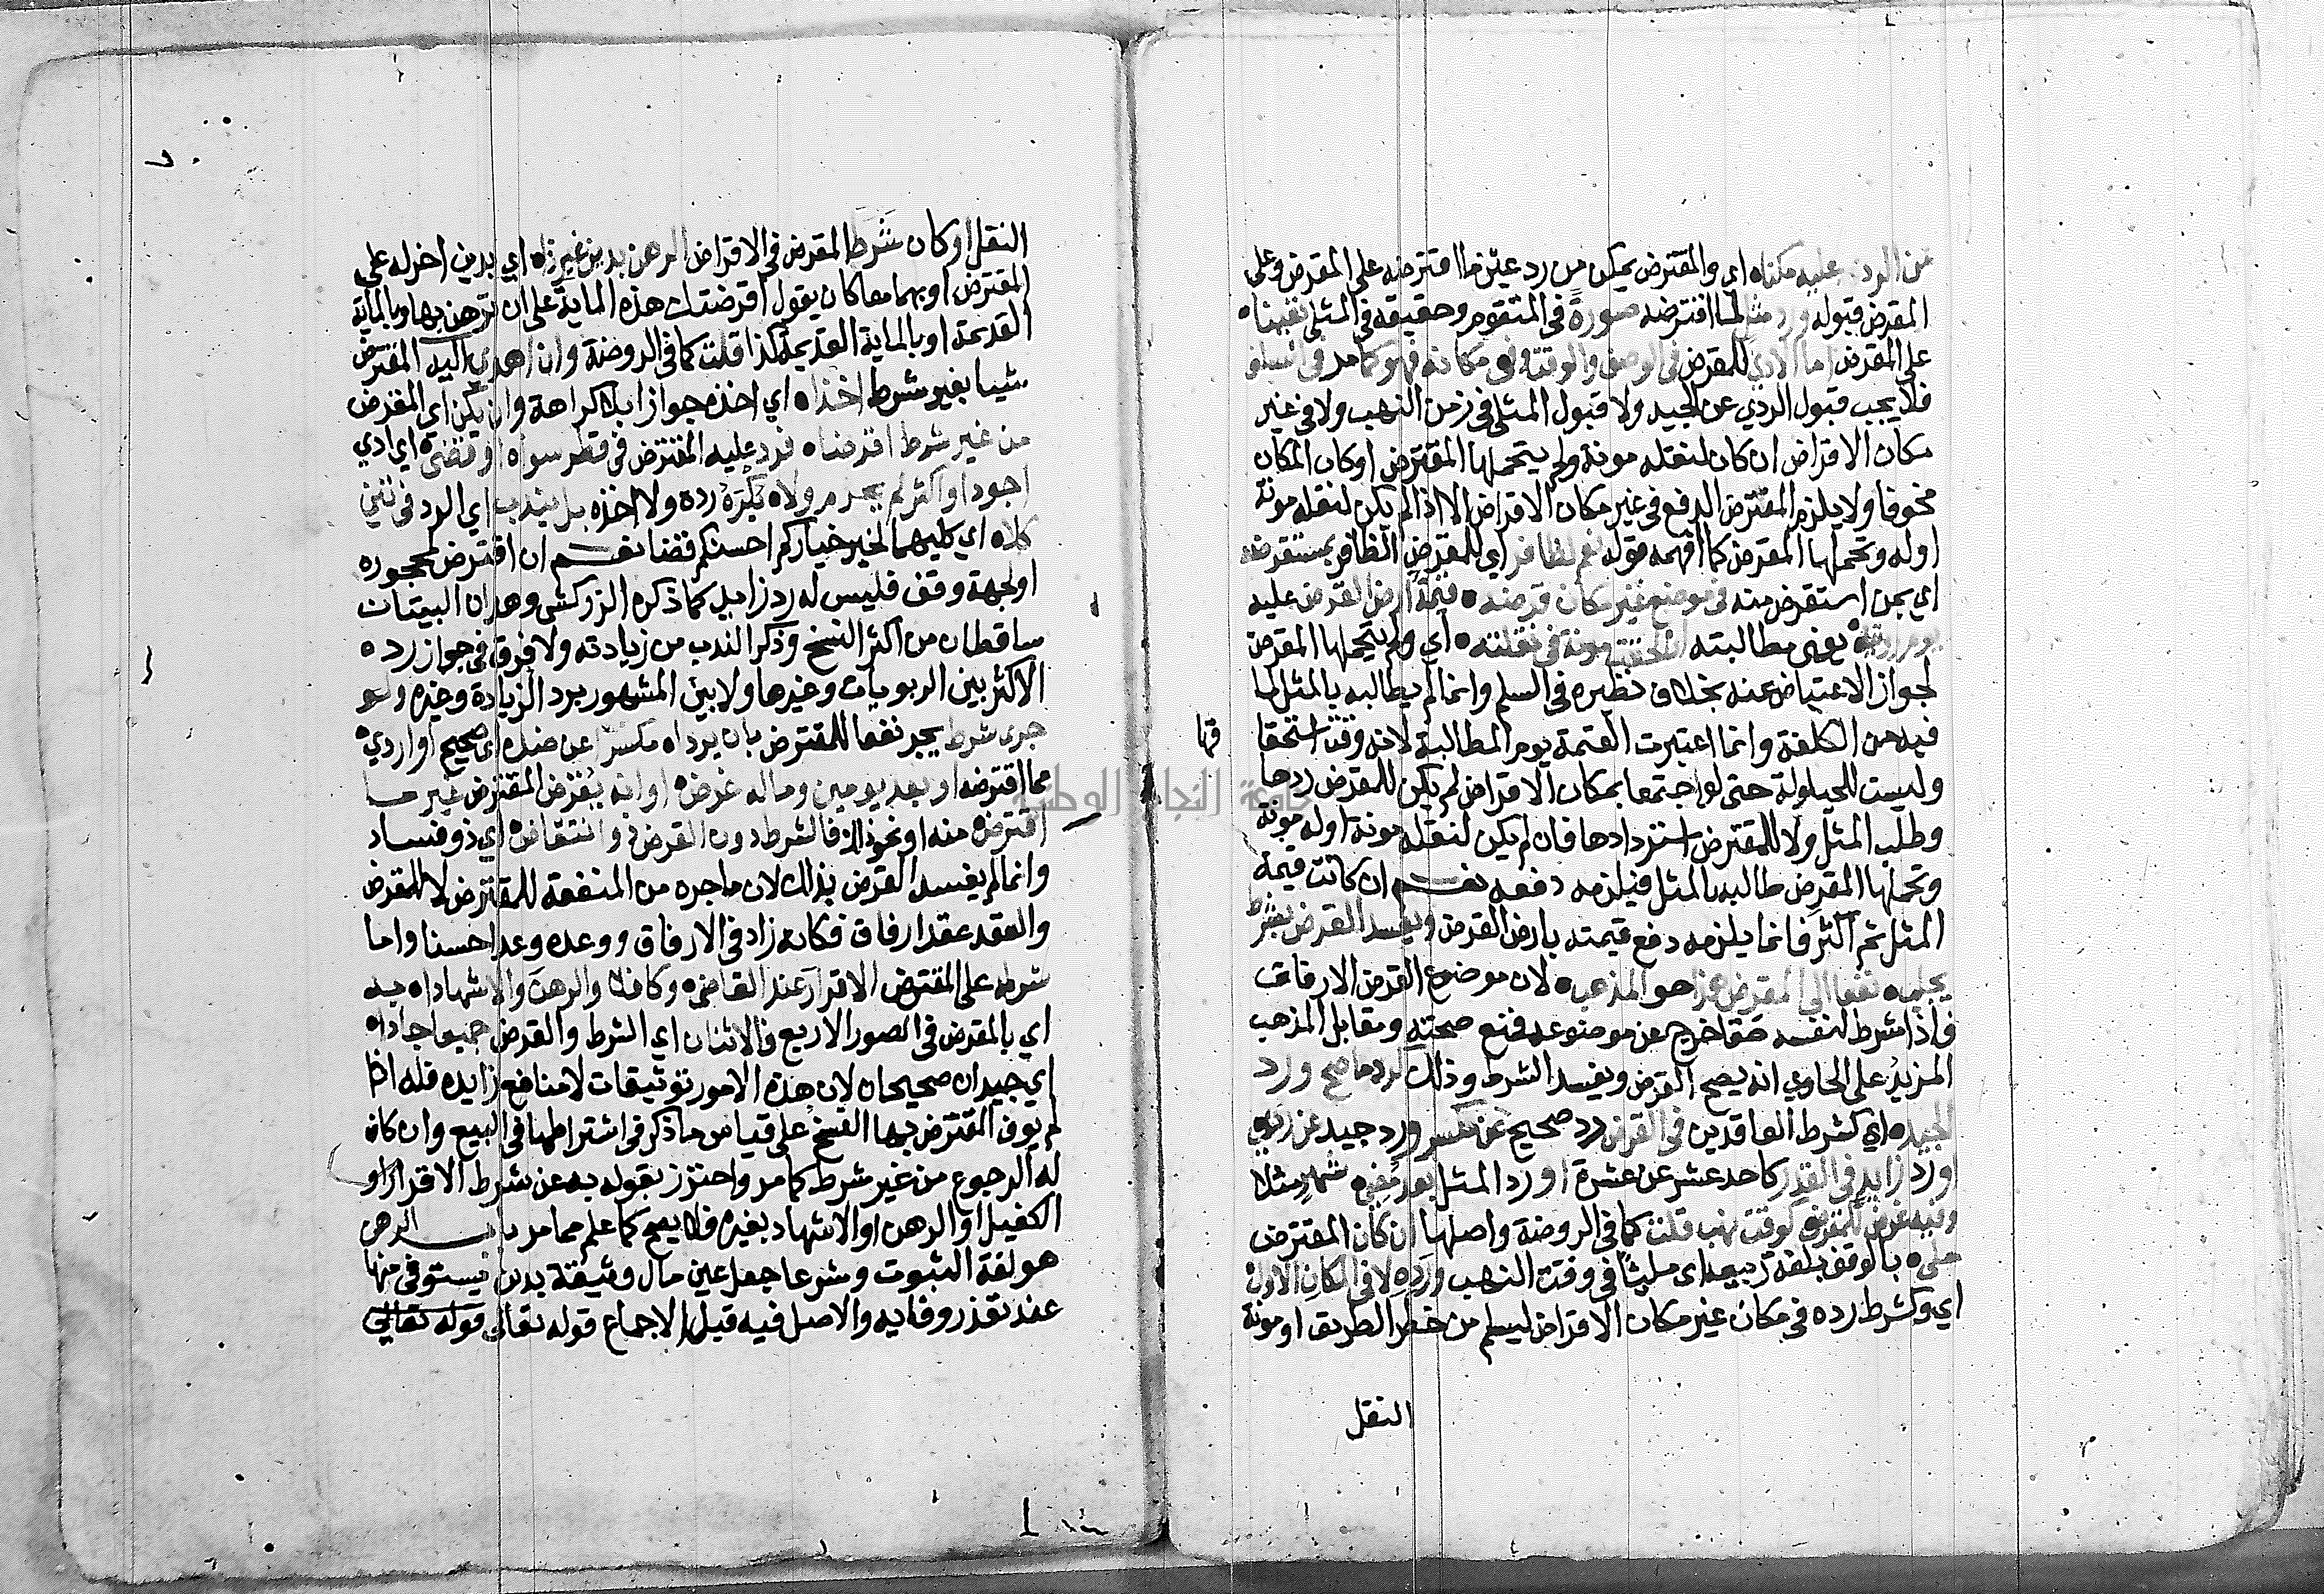 من الرد عليه مكناه اي والمقترض يمكن من رد عين ما اقترضه على المقرض وعلى
المقرض قبوله ورد مثل لما اقترضه صورة في المتقوم وحقيقة في المثلي
على المقرض اما الادي للمقرض في الوصف والوقت وفي مكانه فهو كما مر في
فلا يجب قبول الردي عن الجيد ولا قبول المثلي في زمن النهب ولا في غير
مكان الاقراض ان كان لنقله مونة ولم يتحملها المقترض اوكان المكان
مخوفا ولا يلزم المقترض الدفع في غير مكان الاقراض الا اذا لم يكن لنقله مونة
اوله وتحملها المقرض كما افهمه قوله نعم لظافر اي للمقرض الظافر بمستقرضه
اي بمن استقرض منه في موضع غير مكان قرضه ه قيمة ارض القرض عليه
يوم يعني مطالبته مونة في نقلته ه اي ولم يتحملها المقرض
لجواز الاعتياض عنه بخلاف نظيره في السلم وانما لم يطالبه بالمثل لما
فيه من الكلفة وانما اعتبرت القيمة يوم المطالبة لانه وقت استحقا
قها
وليست للحيلولة حتى لو اجتمعا بمكان الاقراض لم يكن للمقرض ردها
وطلب المثل ولا للمقترض استردادها فان لم يكن لنقله مونة اوله مونة
وتحملها المقرض طالبه بالمثل فيلزمه دفعه نعم ان كانت قيمة
المثل ثم اكثر فانما يلزمه دفع قيمته بارض القرض ويفسد القرض بشرط
يجلبه نفعا الى المقرض هذا هو المذهب ه لان موضوع القرض الارفاق
فاذا شرط لنفسه حقا خرج عن موضوعه فمنع صحته ومقابل المذهب
المزيد على الحاوي انه يصح القرض ويفسد الشرط وذلك كرد ما صح ورد
الجيده اي كشرط العاقدين في القرض رد صحيح عن مكسر ورد جيد عن ردي
او رد زايد في القدر كاحد عشر عن عشرة او رد المثل بعد مضي شهر مثلا
وفيه غرض للمقرض كوقت نهب قلت كما في الروضة واصلها ان كان المقترض
ملي ه بالوقف بلغة ربيعة اي مليئا في وقت النهب ورده لا في المكان الاول
اي وكشرط رده في مكان غير مكان الاقراض ليسلم من خطر الطريق او مونة
النقل
النقل او كان شرط المقرض في الاقراض الرهن بدين غير ذاه اي بدين اخر له على
المقترض او بهما معا كان يقول اقرضتك هذه الماية على ان ترهن بها وبالماية
القديمة او بالماية القديمة كذا قلت كما في الروضة وان اهدي اليه المقترض
شيا بغير شرط اخذاه اي اخذه جوازا بلا كراهة وان يكن اي المقرض
من غير شرط اقرضاه فرد عليه المقترض في قطر سواه او قضى اي ادي
اجود او اكثر لم يحرم ولاه يكره رده ولا اخذه بل يندب اي الرد في ذين
كلاه اي كليهما لخبر خياركم احسنكم قضا نعم ان اقترض لمحجوره
او لجهة وقف فليس له رد زايد كما ذكره الزركشي وهذان البيتان
ساقطان من اكثر النسخ وذكر الندب من زيادته ولا فرق في جواز رده
الاكثر بين الربويات وغيرها ولا بين المشهور برد الزيادة وغيره ولو
جرى شرط يجر نفعا للمقترض بان يرداه مكسرا عن ضده اي صحيح او اردي
مما اقترضه او بعد يومين وماله غرض ه او انه يقرض المقترض غير ما
اقترض منه او نحو ذا فالشرط دون القرض ذو انتقاض ه اي ذو فساد
وانما لم يفسد القرض بذلك لان ما جره من المنفعة للمقترض لا للمقرض
والعقد عقد ارفاق فكانه زاد في الارفاق ووعده وعدا حسنا واما
شرط على المقترض الاقرار عند القاضي ه وكافلا والرهن والاشهاداه به
اي بالمقرض في الصور الاربع فالاثنان اي الشرط والقرض جميعا جاداه
اي جيدان صحيحان لان هذه الامور توثيقات لا منافع زايده فله اذا
لم يوف المقترض بها الفسخ على قياس ما ذكر في اشتراطها في البيع وان كان
له الرجوع من غير شرط كما مر واحترز بقوله به عن شرط الاقرار او
الكفيل او الرهن او الاشهاد بغيره فلا يصح كما علم مما مر باب الرهن
هو لغة الثبوت وشرعا جعل عين مال وثيقة بدين يستوفى منها
عند تعذر وفايه والاصل فيه قبل الاجماع قوله تعالى قوله تعالى